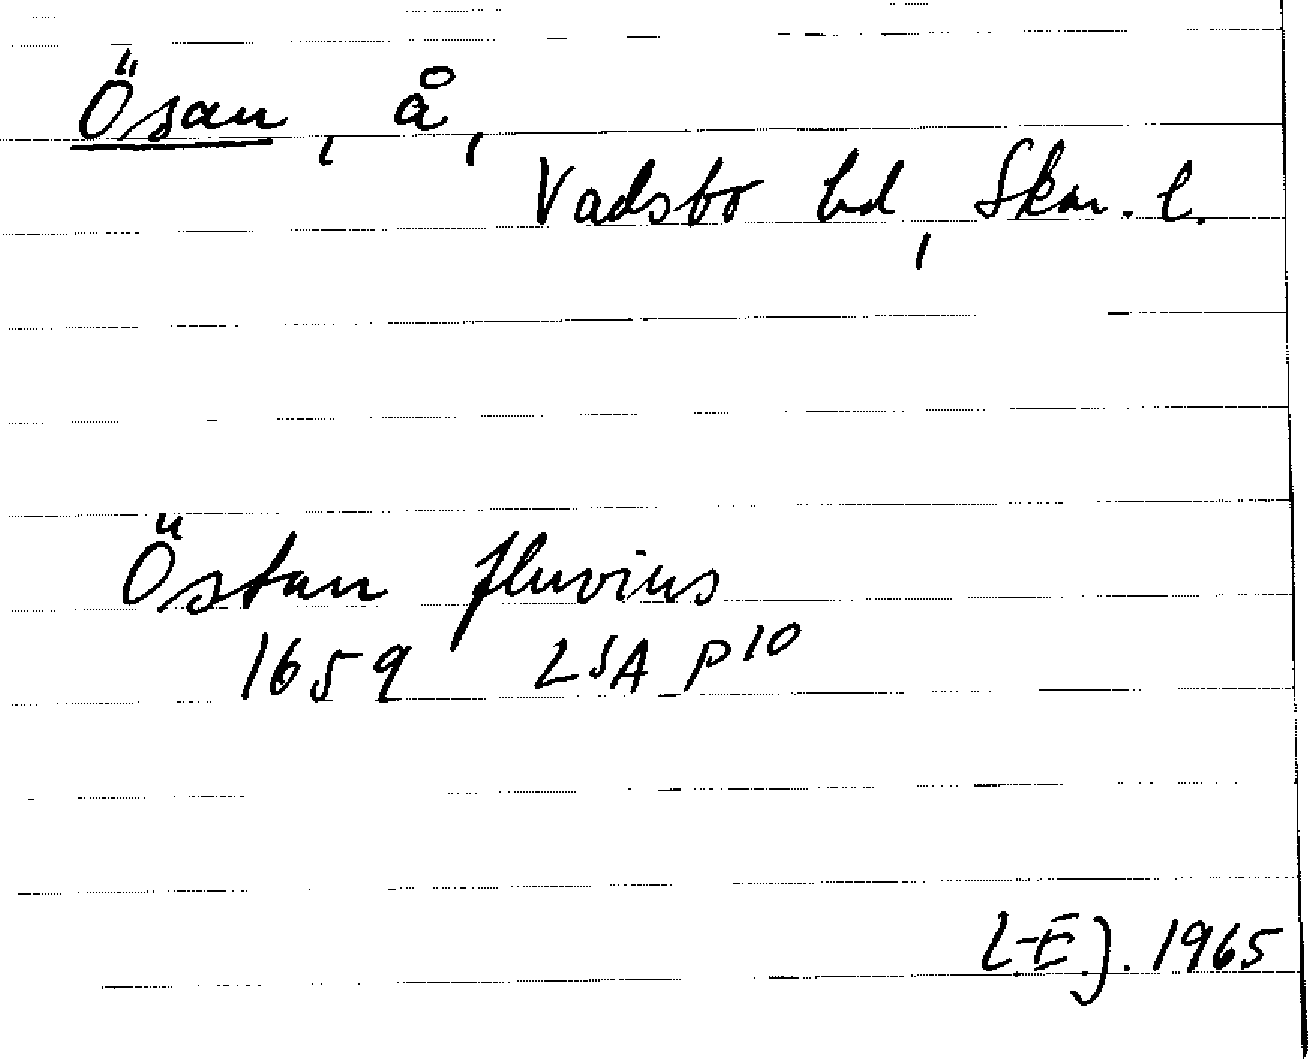 Ösan, å,
Vadsbo hd, Skar. l.
Östan fluvius
1659 LSA P10
L-E J. 1965